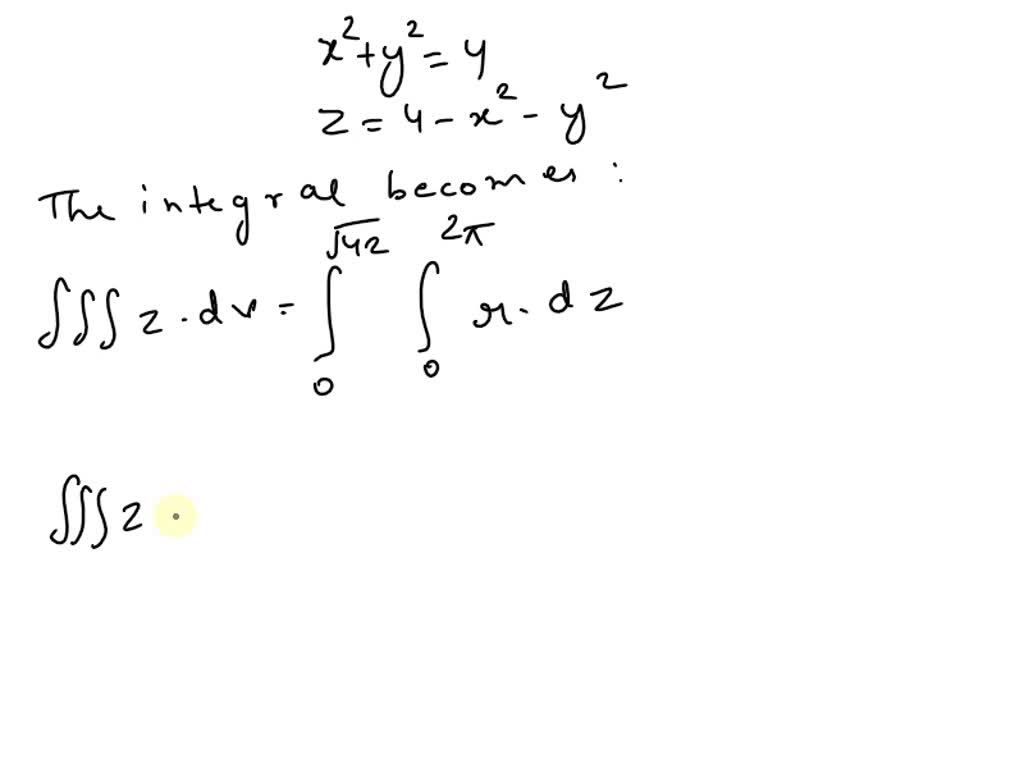 x²+y²=4
z=4-x²-y²
The integral becomes:
∫∫∫ z·dv = ∫₀^√42 ∫₀^2π r·dz
∫∫∫ z